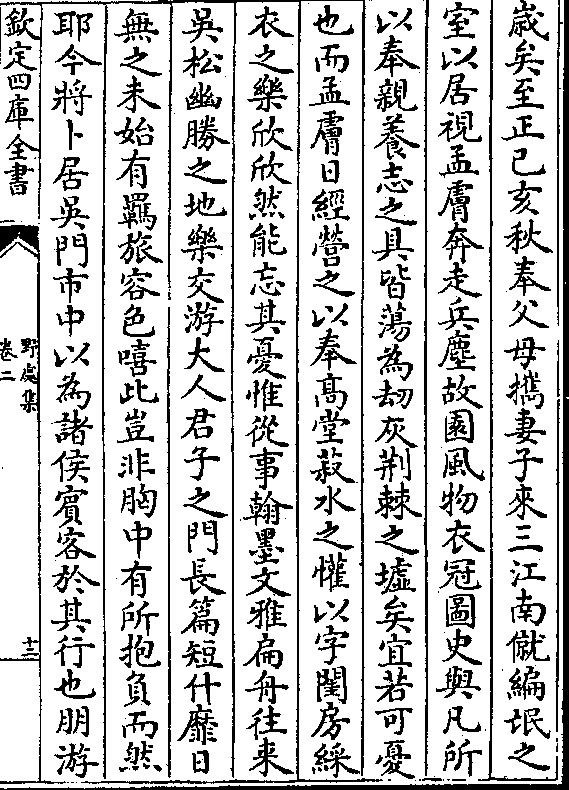 歳矣至正己亥秋奉父母攜妻子來三江南僦編氓之
室以居視孟膚奔走兵塵故園風物衣冠圖史與凡所
以奉親養志之具皆蕩為刼灰荆棘之墟矣宜若可憂
也而孟膚日經營之以奉髙堂菽水之懽以字閨房綵
衣之樂欣欣然能忘其憂惟從事翰墨文雅扁舟往来
吳松幽勝之地樂交游大人君子之門長篇短什靡日
無之未始有羈旅容色嘻此豈非胸中有所抱負而然
耶今將卜居吳門市中以為諸侯賓客於其行也朋游
欽定四庫全書
野處集
卷二
十三